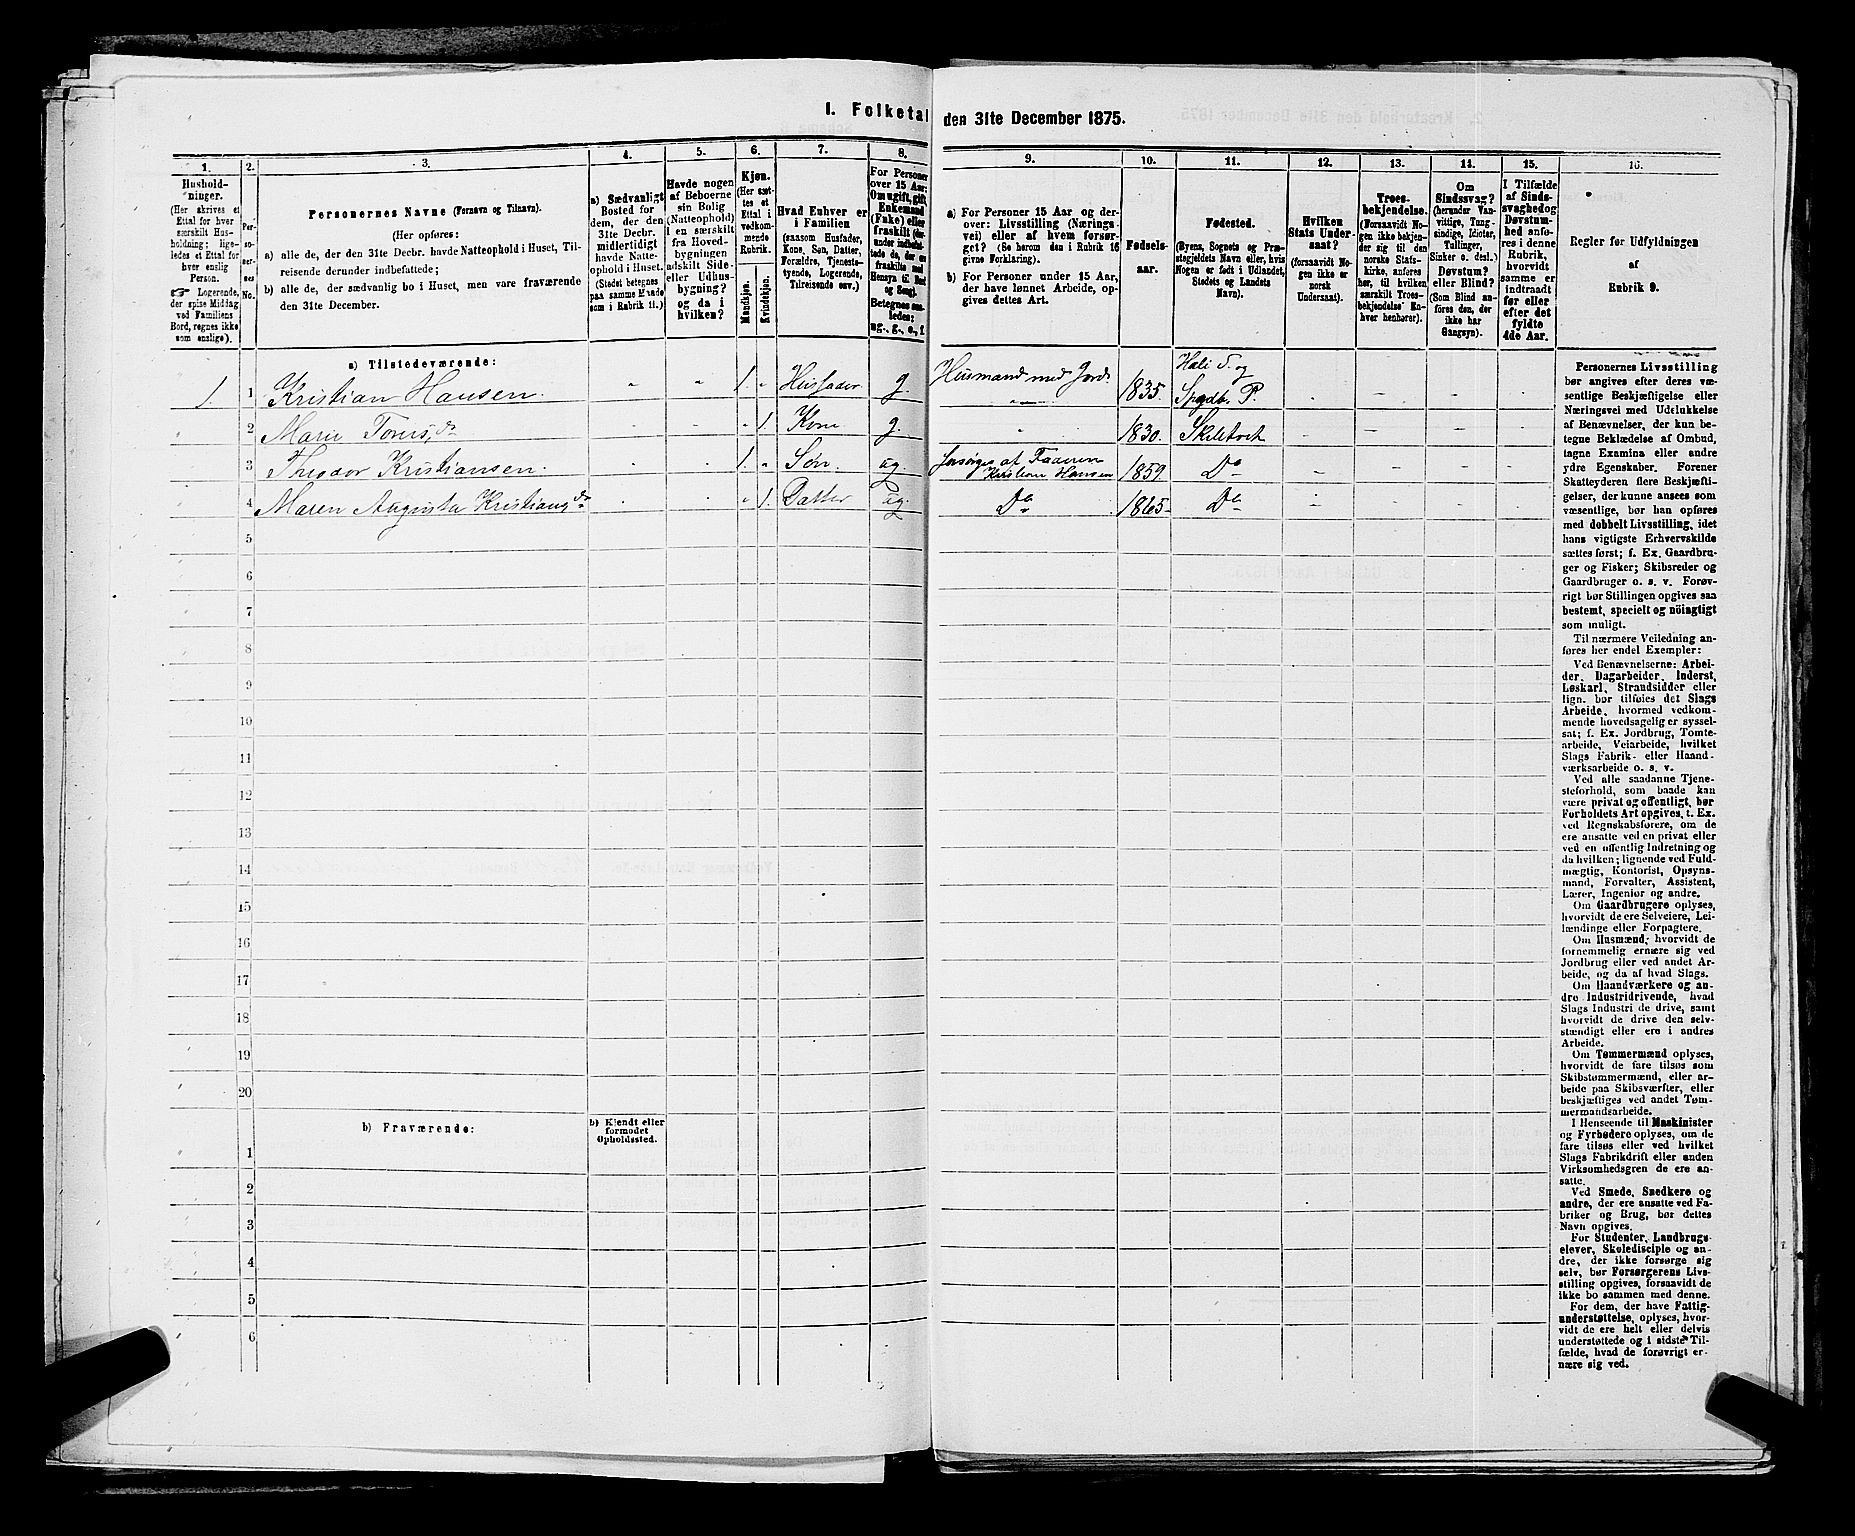 I. Folketal den 31te December 1875.
1. 2. 3. 4. 5. 6. 7. 8. 9. 10. 11. 12. 13. 14. 15. 16.
Hushold-
ninger.
(Her skrives et
Ettal for hver
særskilt Hus-
holdning; lige-
ledes et Ettal for
hver enslig
Person.
☞ Logerende,
der spise Middag
ved Familiens
Bord, regnes ikke
som enslige).
Per-
so-
ner-
nes
No.
Personernes Navne (Fornavn og Tilnavn).
(Her opføres:
a) alle de, der den 31te Decbr. havde Natteophold i Huset, Til-
reisende derunder indbefattede;
b) alle de, der sædvanlig bo i Huset, men vare fraværende
den 31te December.
a) Sædvanligt
Bosted for
dem, der den
31te Decbr.
midlertidigt
havde Natte-
ophold i Huset.
(Stedet betegnes
paa samme Maade
som i Rubrik 11.)
Havde nogen
af Beboerne
sin Bolig
(Natteophold)
i en særskilt
fra Hoved-
bygningen
adskilt Side-
eller Udhus-
bygning?
og da i
hvilken?
Kjøn.
(Her sæt-
tes et
Ettal i
vedkom-
mende
Rubrik.
Mandkjøn.
Kvindekjøn.
Hvad Enhver er
i Familien
(saasom Husfader,
Kone, Søn, Datter,
Forældre, Tjeneste-
tyende, Logerende,
Tilreisende osv.)
For Personer
over 15 Aar:
Om ugift, gift,
Enkemand
(Enke) eller
fraskilt (der-
under indbefat-
tede de, der ere
fraskilte med
Hensyn til Bord
og Seng).
Betegnes saa-
ledes:
ug., g., e., f.
a) For Personer 15 Aar og der-
over: Livsstilling (Nærings-
vei) eller af hvem forsør-
get? (Se herom den i Rubrik 16
givne Forklaring).
b) For Personer under 15 Aar,
der have lønnet Arbeide, op-
gives dettes Art.
Fødsels-
aar.
Fødested.
(Byens, Sognets og Præ-
stegjeldets Navn eller, hvis
Nogen er født i Udlandet,
Stedets og Landets
Navn).
Hvilken
Stats Under-
saat?
(forsaavidt No-
gen ikke er
norsk
Undersaat).
Troes-
bekjendelse.
(Forsaavidt No-
gen ikke bekjen-
der sig til den
norske Stats-
kirke, anføres
her, til hvilken
særskilt Troes-
bekjendelse En-
hver henhører).
Om
Sindssvag?
(herunder Van-
vittige, Tung-
sindige, Idioter,
Tullinger,
Sinker o. desl.)
Døvstum?
eller Blind?
(Som Blind an-
føres den, der
ikke har
Gangsyn).
I Tilfælde
af Sinds-
svaghed og
Døvstum-
hed anfø-
res i denne
Rubrik,
hvorvidt
samme er
indtraadt
før eller
efter det
fyldte
4de Aar.
Regler før Udfyldningen
af
Rubrik 9.
a) Tilstedeværende:
1. 1 Kristian Hansen. „ „ 1. „ Husfader g. Husmand med Jord. 1835. Høli S. og
Spydb. P.
2 Marie Tories.dr „ 1. Kone g. „ 1830. Skibtvet
3 Theodor Kristiansen. 1. „ Søn ug forsørges af Faderen
Kristian Hansen 1859. Do
4 Maren Augusta Kristiansdr „ 1. Datter ug. Do 1865 Do
5
6
7
8
9
10
11
12
13
14
15
16
17
18
19
20
b) Fraværende:
b) Kjendt eller
formodet
Opholdssted.
1
2
3
4
5
6
Personernes Livsstilling
bør angives efter deres væ-
sentlige Beskjæftigelse eller
Næringsvei med Udelukkelse
af Benævnelser, der kun be-
tegne Beklædelse af Ombud,
tagne Examina eller andre
ydre Egenskaber. Forener
Skatteyderen flere Beskjæfti-
gelser, der kunne ansees som
væsentlige, bør han opføres
med dobbelt Livsstilling, idet
hans vigtigste Erhvervskilde
sættes først; f. Ex. Gaardbru-
ger og Fisker; Skibsreder og
Gaardbruger o. s. v. Forøv-
rigt bør Stillingen opgives saa
bestemt, specielt og nöiagtigt
som muligt.
Til nærmere Veiledning an-
føres her endel Exempler:
Ved Benævnelserne: Arbei-
der, Dagarbeider, Inderst,
Løskarl, Strandsidder eller
lign. bør tilføies det Slags
Arbeide, hvormed vedkom-
mende hovedsagelig er syssel-
sat; f. Ex. Jordbrug, Tomte-
arbeide, Veiarbeide, hvilket
Slags Fabrik- eller Haand-
værksarbeide o. s. v.
Ved alle saadanne Tjene-
steforhold, som baade kan
være privat og offentligt, bør
Forholdets Art opgives, t. Ex.
ved Regnskabsførere, om de
ere ansatte ved en privat eller
ved en offentlig Indretning og
da hvilken; lignende ved Fuld-
mægtig, Kontorist, Opsyns-
mand, Forvalter, Assistent,
Lærer, Ingeniør og andre.
Om Gaardbrugere oplyses,
hvorvidt de ere Selveiere, Lei-
lændinge eller Forpagtere.
Om Husmænd, hvorvidt de
fornemmelig ernære sig ved
Jordbrug eller ved andet Ar-
beide, og da af hvad Slags.
Om Haandværkere og an-
dre Industridrivende, hvad
Slags Industri de drive, samt
hvorvidt de drive den selv-
stændigt eller ere i andres
Arbeide.
Om Tømmermænd oplyses,
hvorvidt de fare tilsøs som
Skibstømmermænd, eller ar-
beide paa Skibsværfter, eller
beskjæftiges ved andet Tøm-
mermandsarbeide.
I Henseende til Maskinister
og Fyrbødere oplyses, om de
fare tilsøs eller ved hvilket
Slags Fabrikdrift eller anden
Virksomhedsgren de ere an-
satte.
Ved Smede, Snedkere og
andre, der ere ansatte ved Fa-
briker og Brug, bør dettes
Navn opgives.
For Studenter, Landbrugs-
elever, Skoledisciple og an-
dre, der ikke forsørge sig
selv, bør Forsørgerens Livs-
stilling opgives, forsaavidt de
ikke bo sammen med denne.
For dem, der have Fattig-
understøttelse, oplyses, hvor-
vidt de ere helt eller delvis
understøttede og i sidste Til-
fælde, hvad de forøvrigt er-
nære sig ved.